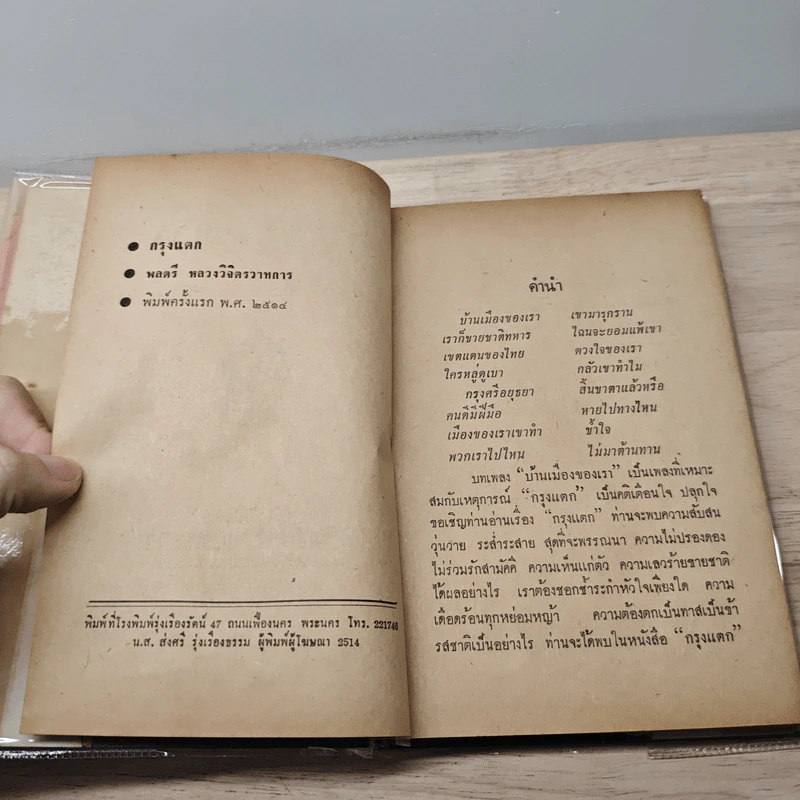 ● กรุงแตก
● พลตรี หลวงวิจิตรวาทการ
● พิมพ์ครั้งแรก พ.ศ. ๒๕๑๔
พิมพ์ที่โรงพิมพ์รุ่งเรืองรัตน์ 47 ถนนเฟื่องนคร พระนคร โทร. 221746
น.ส. ส่งศรี รุ่งเรืองธรรม ผู้พิมพ์ผู้โฆษณา 2514
คำนำ
บ้านเมืองของเรา เขามารุกราน
เราก็ชายชาติทหาร ไฉนจะยอมแพ้เขา
เขตแดนของไทย ดวงใจของเรา
ใครหลู่ดูเบา กลัวเขาทำไม
กรุงศรีอยุธยา สิ้นชาตาแล้วหรือ
คนดีมีฝีมือ หายไปทางไหน
เมืองของเราเขาทำ ช้ำใจ
พวกเราไปไหน ไม่มาต้านทาน
บทเพลง “บ้านเมืองของเรา” เป็นเพลงที่เหมาะ
สมกับเหตุการณ์ “กรุงแตก” เป็นคติเตือนใจ ปลุกใจ
ขอเชิญท่านอ่านเรื่อง “กรุงแตก” ท่านจะพบความสับสน
วุ่นวาย ระส่ำระสาย สุดที่จะพรรณนา ความไม่ปรองดอง
ไม่ร่วมรักสามัคคี ความเห็นแก่ตัว ความเลวร้ายขายชาติ
ได้ผลอย่างไร เราต้องชอกช้ำระกำหัวใจเพียงใด ความ
เดือดร้อนทุกหย่อมหญ้า ความต้องตกเป็นทาสเป็นข้า
รสชาติเป็นอย่างไร ท่านจะได้พบในหนังสือ “กรุงแตก”